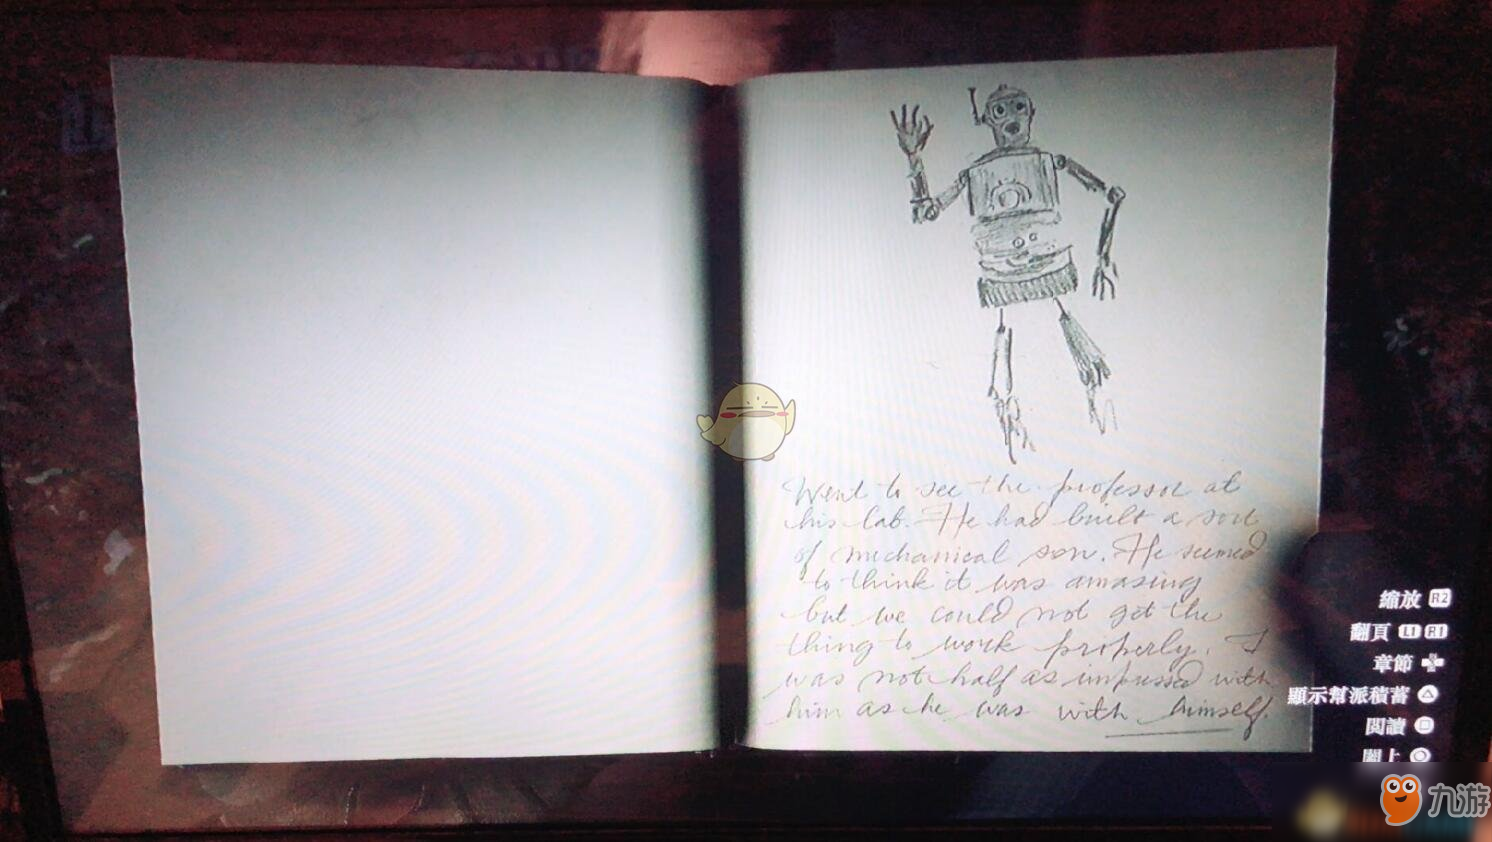 Went to see the professor at
his lab. He had built a sort
of mechanical son. He seemed
to think it was amazing
but we could not get the
thing to work properly. I
was not half as impressed with
him as he was with himself.
縮放 R2
翻頁 L1 R1
章節
顯示幫派積蓄
閱讀
闔上
九游